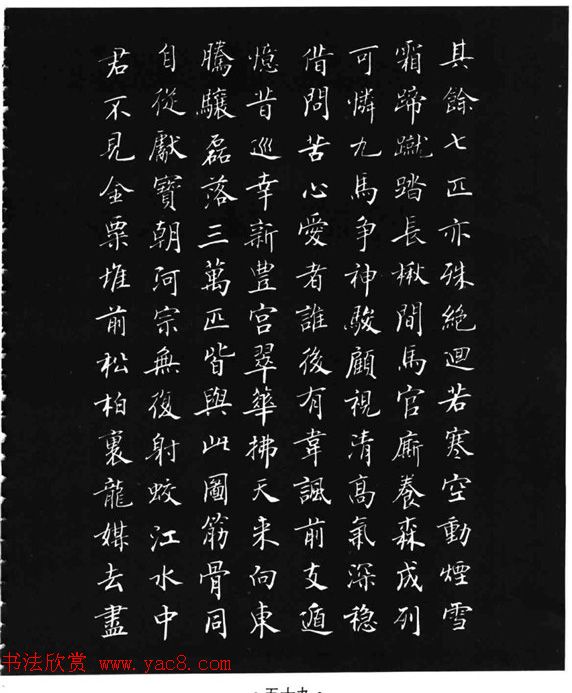 其餘七匹亦殊絶迥若寒空動煙雪
霜蹄蹴踏長楸間馬官廝養森成列
可憐九馬争神駿顧視清高氣深稳
借問苦心愛者誰後有韋諷前支遁
憶昔巡幸新豊宫翠華拂天来向東
騰驤磊落三萬匹皆與此圖筋骨同
自從獻寶朝河宗無復射蛟江水中
君不見金粟堆前松柏裏龍媒去盡
书法欣赏 www.yac8.com
·五十九·